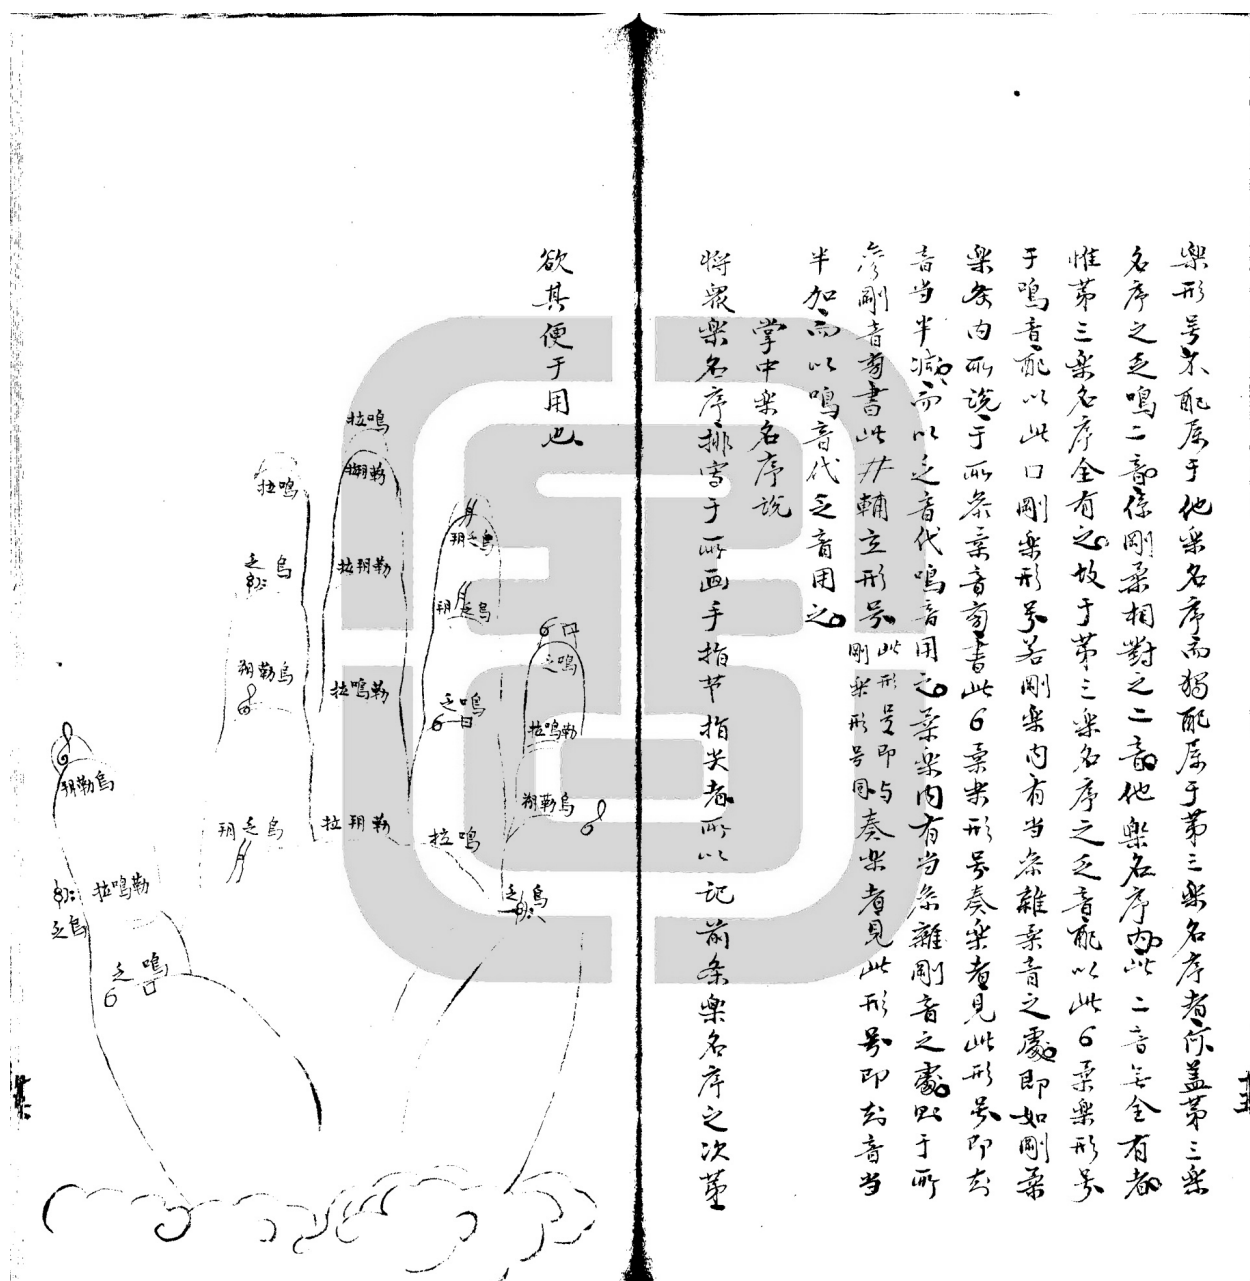 樂形号不配屬于他樂名序而獨配屬于第三樂名序者何盖第三樂
名序之乏鳴二音係剛柔相對之二音他樂名序內此二音無全有者
惟第三樂名序全有之故于第三樂名序之乏音配以此6柔樂形号
于鳴音配以此口剛樂形号若剛樂內有当条雜柔音之處即如剛柔
樂条內所說于所条柔音旁書此6柔樂形号奏樂者見此形号即知
音当半减而以乏音代鳴音用之柔樂內有当条雜剛音之處則于所
条剛音旁書此廾輔立形号
此形号即与
剛樂形号同
奏樂者見此形号即知音当
半加而以鳴音代乏音用之
掌中樂名序說
将衆樂名序排寫于所画手指节指尖者所以記前条樂名序之次第
欲其便于用也
拉鳴
朔勒
拉朔勒
拉鳴勒
拉朔勒
拉鳴
乏烏
朔勒烏
朔乏烏
朔乏烏
朔乏烏
乏鳴
6 口
拉鳴
6 口
乏鳴
拉鳴勒
朔勒烏
乏烏
朔勒烏
拉鳴勒
乏烏
乏鳴
6 口